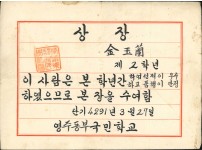 상장
金玉蘭
제 2 학년
이 사람은 본 학년간 학업성적이 우수
하고 품행이 단정
하였으므로 본 장을 수여함
단기 4291 년 3 월 27 일
영주동부국민학교